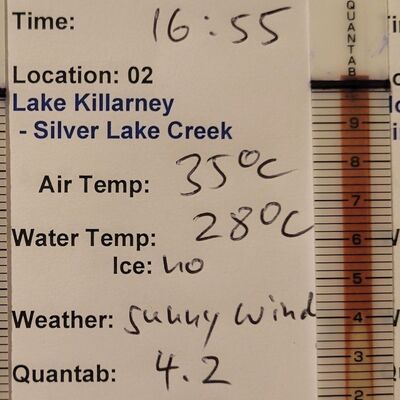 Time: 16:55
Location: 02
Lake Killarney
- Silver Lake Creek
Air Temp: 35°C
Water Temp: 28°C
Ice: no
Weather: sunny wind
Quantab: 4.2
QUANTAB
9
8
7
6
5
4
3
2